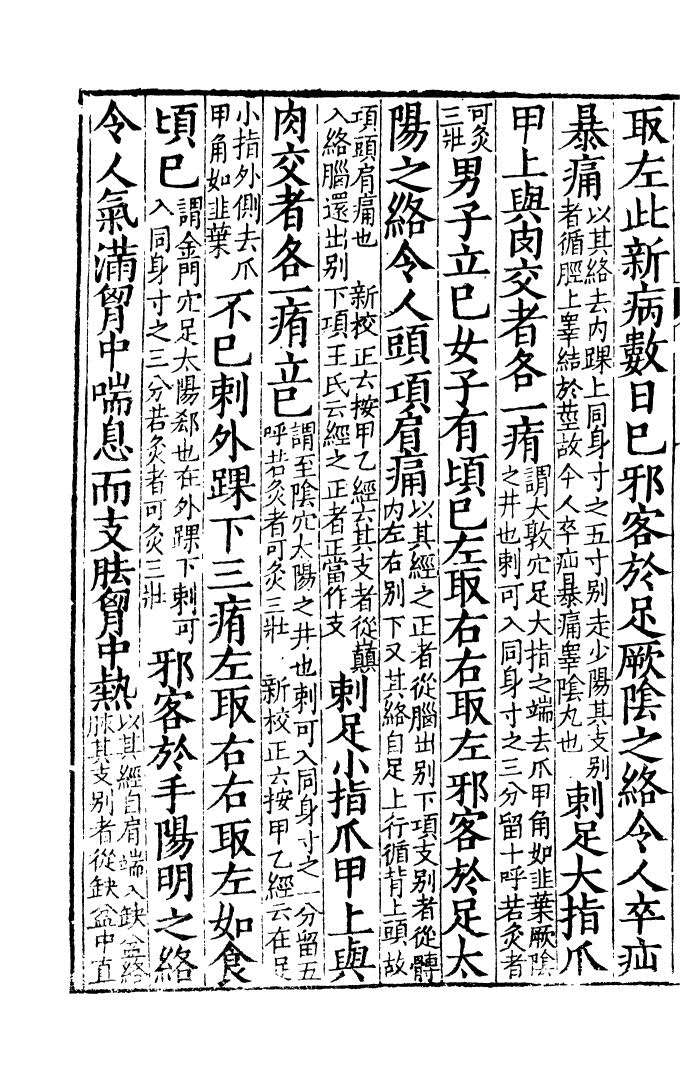 取左此新病數日已邪客於足厥陰之絡令人卒疝
暴痛以其絡去內踝上同身寸之五寸别走少陽其支别者循脛上睾結於莖故令人卒疝暴痛睾陰丸也刺足大指爪
甲上與肉交者各一痏謂大敦穴足大指之端去爪甲角如韭葉厥陰之井也刺可入同身寸之三分留十呼若灸者
可灸三壯男子立已女子有頃已左取右右取左邪客於足太
陽之絡令人頭項肩痛以其經之正者從腦出别下項支别者從髆內左右别下又其絡自足上行循背上頭故
項頭肩痛也 新校正云按甲乙經云其支者從巔入絡腦還出别下項王氏云經之正者正當作支刺足小指爪甲上與
肉交者各一痏立已謂至陰穴太陽之井也刺可入同身寸之一分留五呼若灸者可灸三壯 新校正云按甲乙經云在足
小指外側去爪甲角如韭葉不已刺外踝下三痏左取右右取左如食
頃已謂金門穴足太陽郄也在外踝下刺可入同身寸之三分若灸者可灸三壯邪客於手陽明之絡
令人氣滿胷中喘息而支胠胷中熱以其經自肩端入缺盆絡脉其支别者從缺盆中直